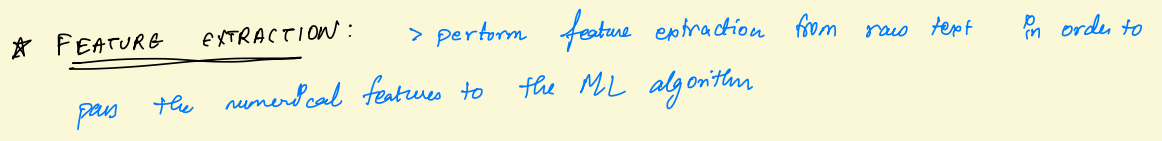 ☆ FEATURE EXTRACTION: > perform feature extraction from raw text in order to
pass the numerical features to the ML algorithm